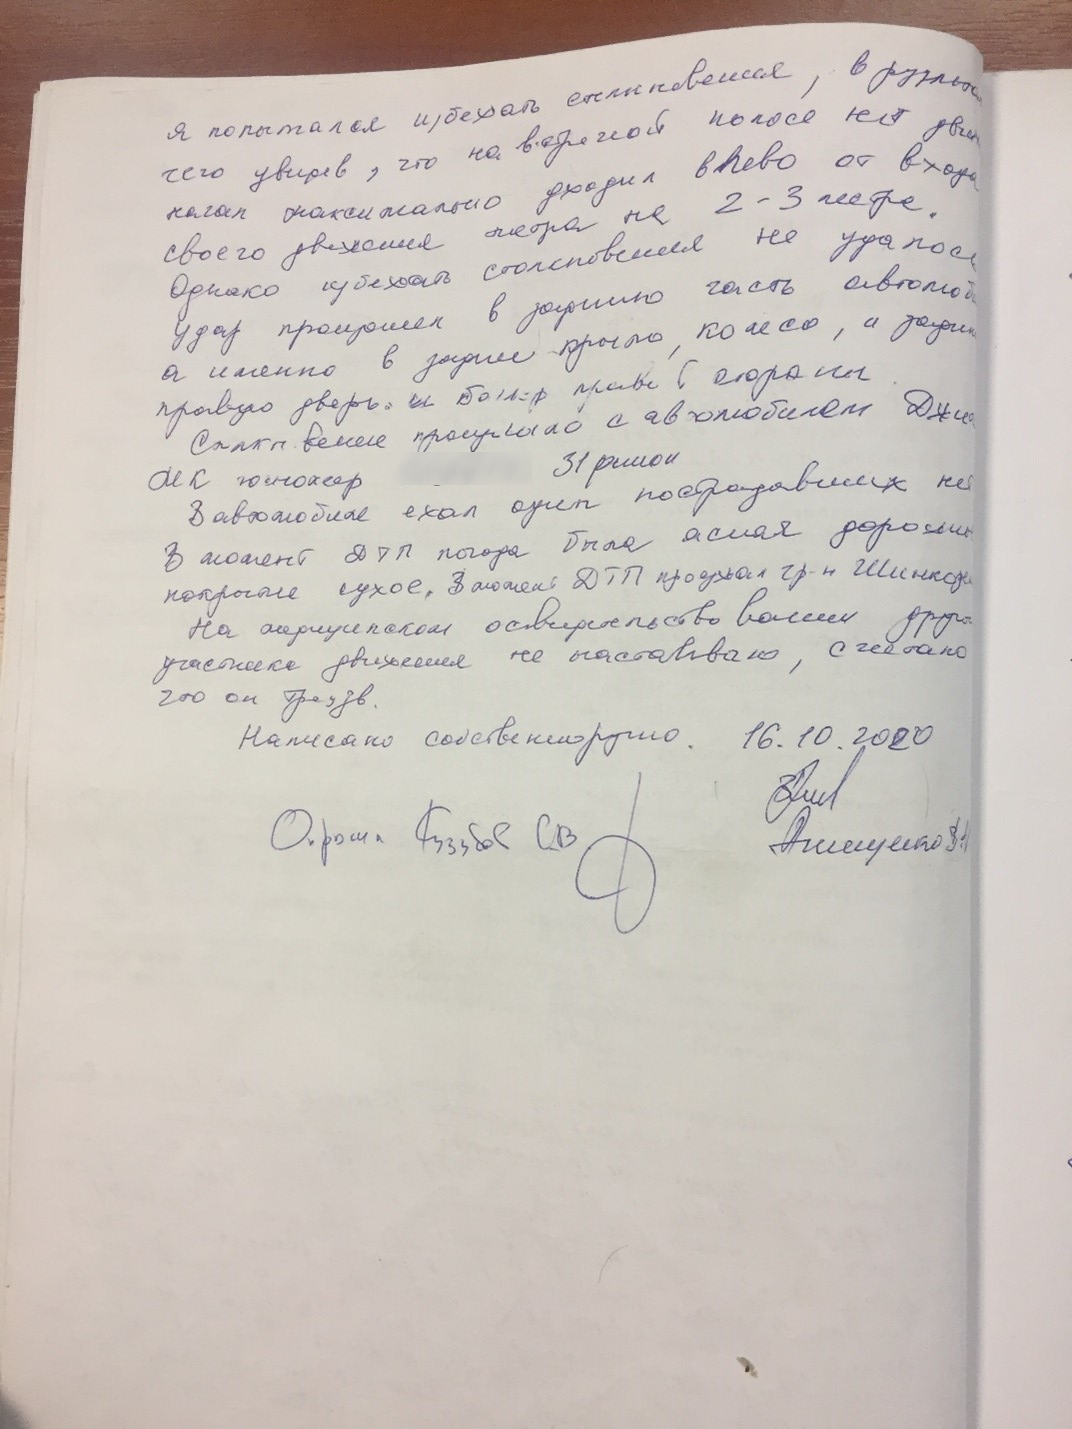 я попытался избежать столкновения, в результ
чего увидев, что на встречной полосе нет движ
начал максимально уходил влево от входа
своего движения метра на 2-3 метра.
Однако избежать столкновения не удалось
удар произошел в заднюю часть автомоб
а именно в заднее крыло, колесо, и задню
правую дверь. и бампер правой стороны
Столкновение произошло с автомобилем Джи
МК 31 регион
В автомобиле ехал один пострадавших нет
В момент ДТП погода была ясная дорожно
покрытие сухое. В момент ДТП гр-н
На медицинском освидетельствовании друго
участника движения не настаиваю, считаю
что он трезв.
Написано собственноручно. 16.10.2020
СВ